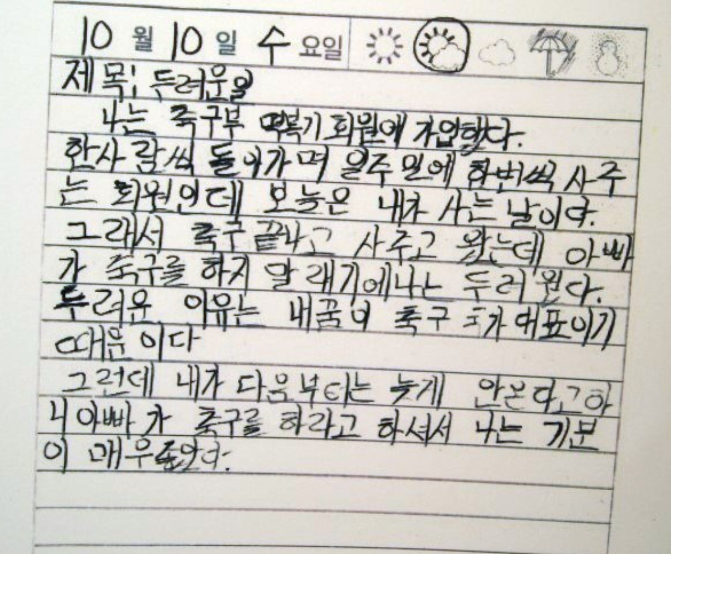 10 월 10 일 수 요일
제 목: 두려운일
나는 축구부 떡볶기 회원에 가입했다.
한사람씩 돌아가며 일주일에 한번씩 사주
는 회원인데 오늘은 내가 사는 날이다.
그래서 축구 끝나고 사주고 왔는데 아빠
가 축구를 하지 말래기에 나는 두려웠다.
두려운 이유는 내꿈이 축구 국가대표이기
때문이다
그런데 내가 다음부터는 늦게 안온다고하
니 아빠가 축구를 하라고 하셔서 나는 기분
이 매우좋았다.